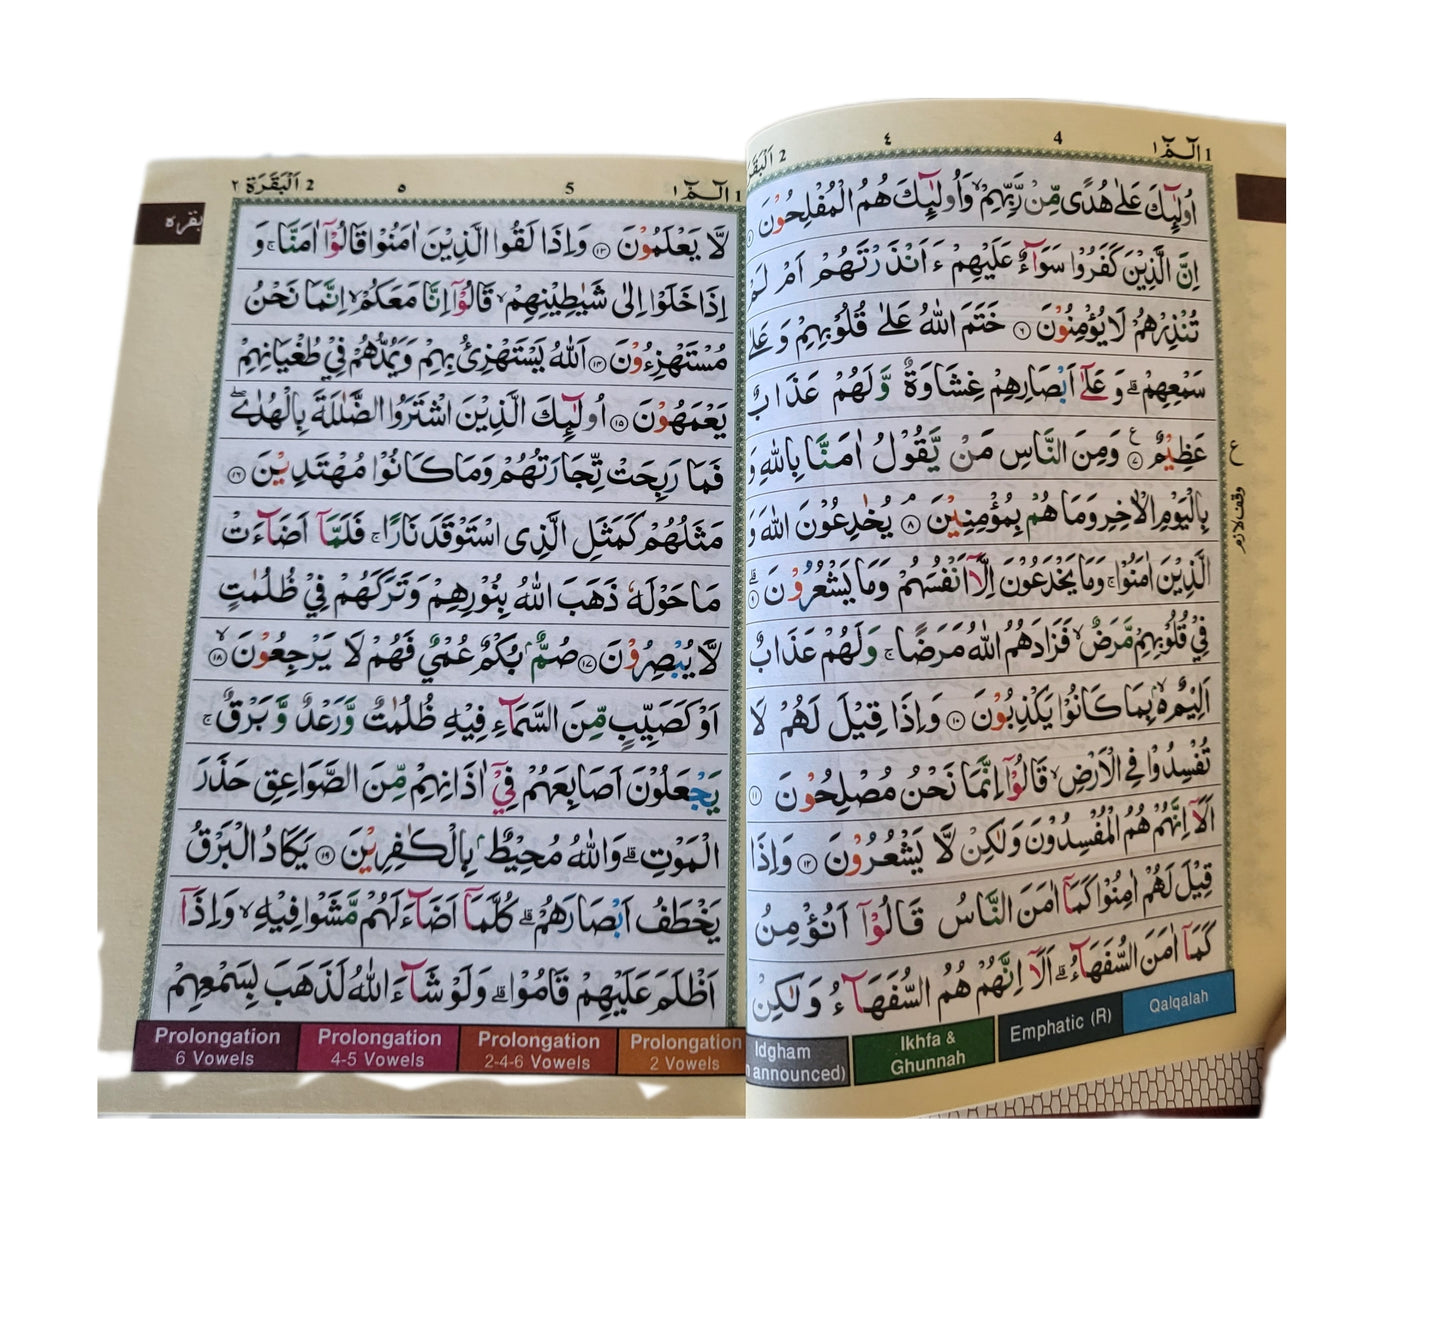 1 الٓمّٓ ١
4
٤
2 اَلْبَقَ
اُولٰٓئِكَ عَلٰى هُدًى مِّنْ رَّبِّهِمْ ۙ وَاُولٰٓئِكَ هُمُ الْمُفْلِحُوْنَ
اِنَّ الَّذِيْنَ كَفَرُوْا سَوَآءٌ عَلَيْهِمْ ءَاَنْذَرْتَهُمْ اَمْ لَمْ
تُنْذِرْهُمْ لَا يُؤْمِنُوْنَ ۝٦ خَتَمَ اللّٰهُ عَلٰى قُلُوْبِهِمْ وَ عَلٰى
سَمْعِهِمْ ۭ وَ عَلٰٓى اَبْصَارِهِمْ غِشَاوَةٌ وَّ لَهُمْ عَذَابٌ
عَظِيْمٌ ۝٧ وَمِنَ النَّاسِ مَنْ يَّقُوْلُ اٰمَنَّا بِاللّٰهِ وَ
بِالْيَوْمِ الْاٰخِرِ وَمَا هُمْ بِمُؤْمِنِيْنَ ۝٨ يُخٰدِعُوْنَ اللّٰهَ وَ
الَّذِيْنَ اٰمَنُوْا ۚ وَمَا يَخْدَعُوْنَ اِلَّآ اَنْفُسَهُمْ وَمَا يَشْعُرُوْنَ ۝٩
فِيْ قُلُوْبِهِمْ مَّرَضٌ ۙ فَزَادَهُمُ اللّٰهُ مَرَضًا ۚ وَلَهُمْ عَذَابٌ
اَلِيْمٌۢ ۙ بِمَا كَانُوْا يَكْذِبُوْنَ ۝١٠ وَاِذَا قِيْلَ لَهُمْ لَا
تُفْسِدُوْا فِي الْاَرْضِ ۙ قَالُوْٓا اِنَّمَا نَحْنُ مُصْلِحُوْنَ ۝١١
اَلَآ اِنَّهُمْ هُمُ الْمُفْسِدُوْنَ وَلٰكِنْ لَّا يَشْعُرُوْنَ ۝١٢ وَاِذَا
قِيْلَ لَهُمْ اٰمِنُوْا كَمَآ اٰمَنَ النَّاسُ قَالُوْٓا اَنُؤْمِنُ
كَمَآ اٰمَنَ السُّفَهَآءُ ۭ اَلَآ اِنَّهُمْ هُمُ السُّفَهَآءُ وَلٰكِنْ
ع
وقف لازم
Idgham
announced)
Ikhfa &
Ghunnah
Emphatic (R)
Qalqalah
1 الٓمّٓ ١
5
٥
2 اَلْبَقَرَة ٢
بقره
لَّا يَعْلَمُوْنَ ۝١٣ وَاِذَا لَقُوا الَّذِيْنَ اٰمَنُوْا قَالُوْٓا اٰمَنَّا ۚ وَ
اِذَا خَلَوْا اِلٰى شَيٰطِيْنِهِمْ ۙ قَالُوْٓا اِنَّا مَعَكُمْ ۙ اِنَّمَا نَحْنُ
مُسْتَهْزِءُوْنَ ۝١٤ اَللّٰهُ يَسْتَهْزِئُ بِهِمْ وَيَمُدُّهُمْ فِيْ طُغْيَانِهِمْ
يَعْمَهُوْنَ ۝١٥ اُولٰٓئِكَ الَّذِيْنَ اشْتَرَوُا الضَّلٰلَةَ بِالْهُدٰى ۠
فَمَا رَبِحَتْ تِّجَارَتُهُمْ وَمَا كَانُوْا مُهْتَدِيْنَ ۝١٦
مَثَلُهُمْ كَمَثَلِ الَّذِى اسْتَوْقَدَ نَارًا ۚ فَلَمَّآ اَضَآءَتْ
مَا حَوْلَهٗ ذَهَبَ اللّٰهُ بِنُوْرِهِمْ وَتَرَكَهُمْ فِيْ ظُلُمٰتٍ
لَّا يُبْصِرُوْنَ ۝١٧ صُمٌّۢ بُكْمٌ عُمْيٌ فَهُمْ لَا يَرْجِعُوْنَ ۝١٨ ۙ
اَوْ كَصَيِّبٍ مِّنَ السَّمَآءِ فِيْهِ ظُلُمٰتٌ وَّرَعْدٌ وَّ بَرْقٌ ۚ
يَجْعَلُوْنَ اَصَابِعَهُمْ فِيْٓ اٰذَانِهِمْ مِّنَ الصَّوَاعِقِ حَذَرَ
الْمَوْتِ ۭ وَاللّٰهُ مُحِيْطٌۢ بِالْكٰفِرِيْنَ ۝١٩ يَكَادُ الْبَرْقُ
يَخْطَفُ اَبْصَارَهُمْ ۭ كُلَّمَآ اَضَآءَ لَهُمْ مَّشَوْا فِيْهِ ۙ وَاِذَآ
اَظْلَمَ عَلَيْهِمْ قَامُوْا ۭ وَلَوْ شَآءَ اللّٰهُ لَذَهَبَ بِسَمْعِهِمْ
Prolongation
6 Vowels
Prolongation
4-5 Vowels
Prolongation
2-4-6 Vowels
Prolongation
2 Vowels